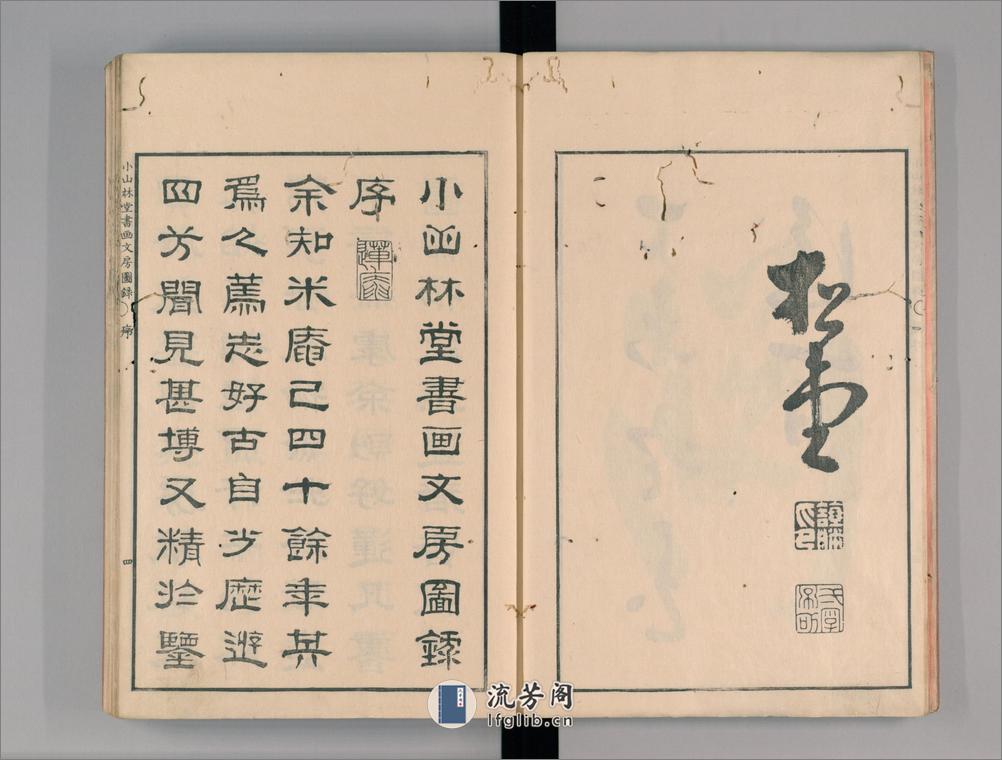 松堂
小山林堂書画文房圖錄
序
余知米庵已四十餘年其
爲人篤志好古自少歷遊
四方聞見甚博又精於鑒
小山林堂書画文房圖錄
序
四
流芳阁
lfglib.cn